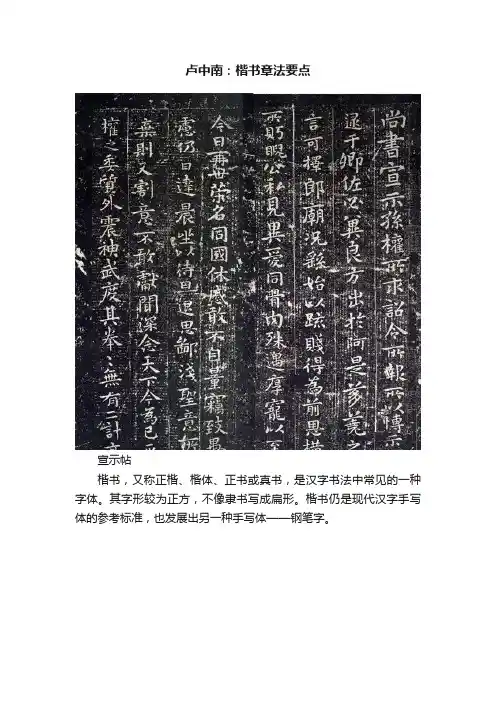 卢中南：楷书章法要点
尚書宣示孫權所求詔令所報所以博示
逮于卿佐必異良方出於阿是芻蕘之
言可擇郎廟況繇始以疏賤得為前思橫
所眄睨公私見異愛同骨肉殊遇厚寵以至
今日再世榮名同國休慼敢不自量竊致愚
慮仍日達晨坐以待旦退思鄙淺聖意所
棄則又割意不敢獻聞深念天下今為已平
權之委質外震神武度其拳〻無有二計高
宣示帖
楷书，又称正楷、楷体、正书或真书，是汉字书法中常见的一种
字体。其字形较为正方，不像隶书写成扁形。楷书仍是现代汉字手写
体的参考标准，也发展出另一种手写体——钢笔字。